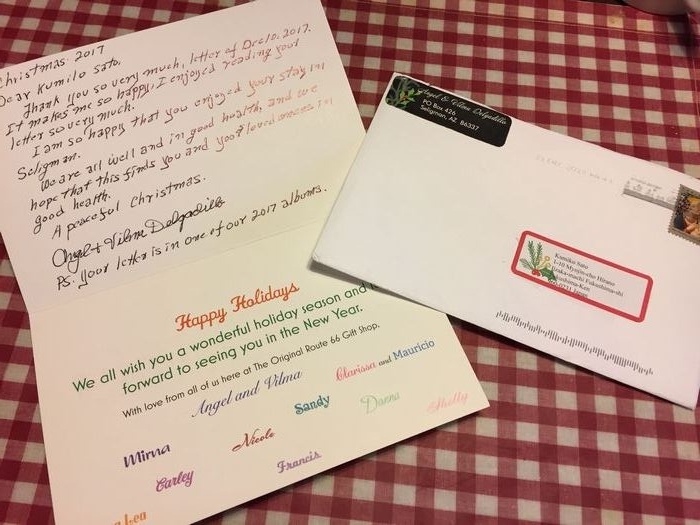 Christmas 2017
Dear Kumilo Sato.
Thank you so very much, letter of Dec10, 2017.
It makes me so happy, I enjoyed reading your
letter so very much.
I am so happy that you enjoyed your stay in
Seligman.
We are all well and in good health, and we
hope that this finds you and your loved onces in
good health.
A peaceful Christmas.
Angel & Vilma Delgadillo
PS: your letter is in one of our 2017 albums.
Happy Holidays
We all wish you a wonderful holiday season and
forward to seeing you in the New Year.
With love from all of us here at The Original Route 66 Gift Shop,
Angel and Vilma
Clarissa and Mauricio
Mirna
Nicole
Sandy
Danna
Shelly
Carley
Francis
Leo
Angel & Vilma Delgadillo
PO Box 426
Seligman, AZ 86337
Kumiko Sato
1-10 Myojin-cho Hirano
Iizaka-machi Fukushima-shi
Fukushima-Ken
0231 Japan